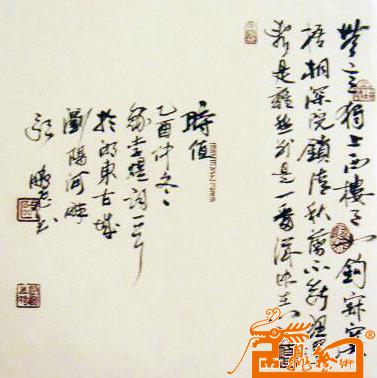 無言獨上西樓月如鈎寂寞
梧桐深院鎖清秋剪不斷理還
亂是離愁別是一番滋味在
時值
乙酉仲冬
錄李煜詞一首
於東古城
瀏陽河畔